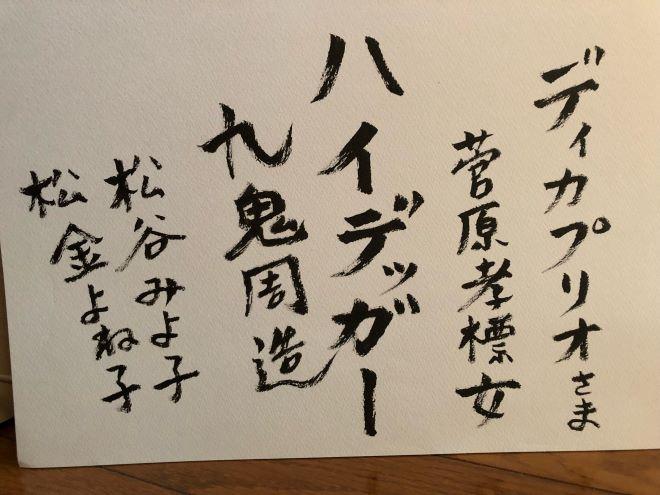 ディカプリオさま
菅原孝標女
ハイデッガー
九鬼周造
松谷みよ子
松金よね子